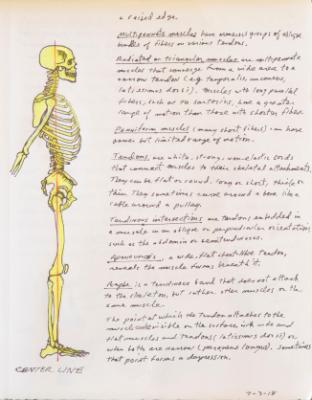 a raised edge.
Multipennate muscles have numerous groups of oblique
bundles of fibers or various tendons.
Radiated or triangular muscles are multipennate
muscles that converge from a wide area to a
narrow tendon (eg. temporalis,
latissimus dorsi). Muscles with long parallel
fibers, such as the sartorius, have a greater
range of motion than those with shorter fibers.
Penniform muscles (many short fibers) can have
power but limited range of motion.
Tendons are white, strong, non elastic cords
that connect muscles to their skeletal attachments.
They can be flat or round, long or short, thick or
thin. They sometimes curve around a bone like a
cable around a pulley.
Tendinous intersections are tendons embedded in
a muscle in an oblique or perpendicular orientation,
such as the abdomen or semitendinosus.
Aponeurosis, a wide, flat sheet-like tendon,
reveals the muscle forms beneath it.
Raphe is a tendinous band that does not attach
to the skeleton, but rather other muscles or the
same muscle.
The point at which the tendon attaches to the
muscle is visible on the surface with wide and
flat muscles and tendons (latissimus dorsi) or
when both are narrow (peroneus longus). Sometimes
that point forms a depression.
CENTER LINE
7-3-18